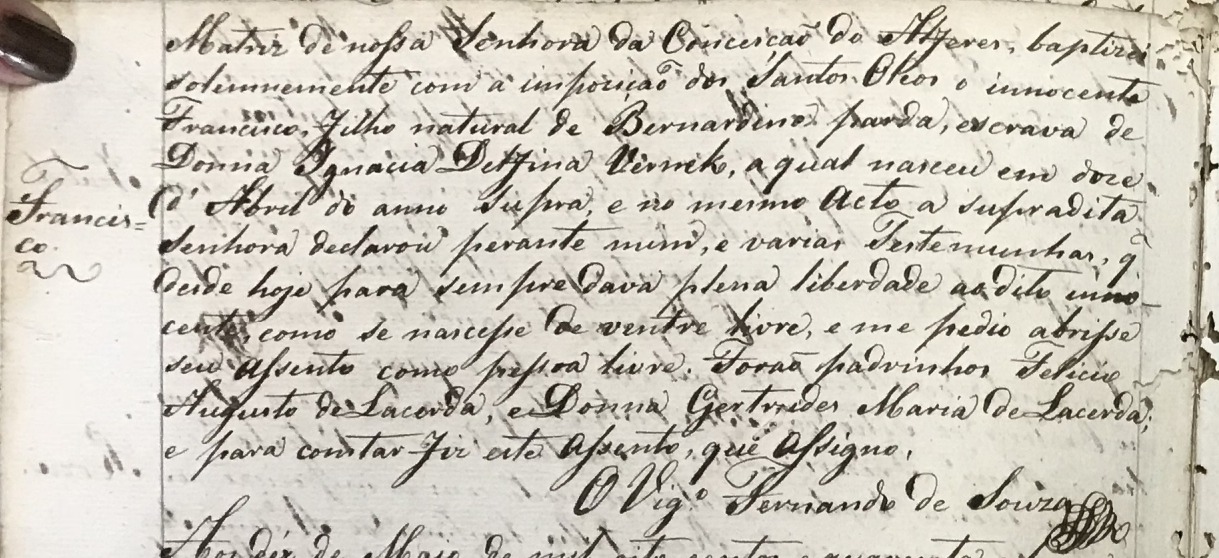 Matriz de nossa Senhora da Conceiçaõ do Alferes, baptizei
solemnemente com a imposiçaõ dos Santos Oleos o innocente
Francisco, Filho natural de Bernardina parda, escrava de
Donna Ignacia Delfina Vernek, a qual nasceu em doze
Francis=
co.
d' Abril do anno supra, e no mesmo Acto a supradita
Senhora declarou perante mim, e varias Testemunhas, q̃
desde hoje para sempre dava plena liberdade ao dito inno
cente, como se nascesse de ventre livre, e me pedio abrisse
seu assento como pessoa livre. Foraõ padrinhos Felicio
Augusto de Lacerda, e Donna Gertrudes Maria de Lacerda;
e para constar fiz este assento, que assigno.
O Vigº Fernando de Souza
Aos dez de Maio de mil oito centos e quarenta